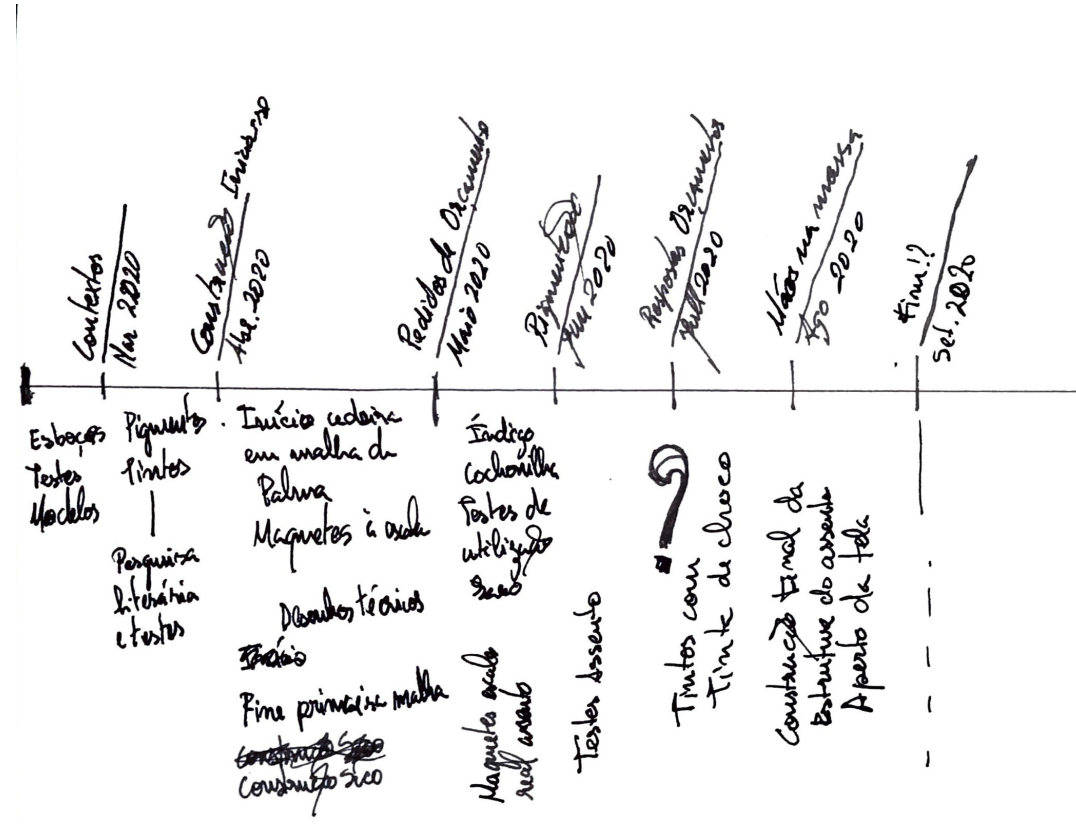 Contextos
Mar 2020
Construção Iniciasse
Abr. 2020
Pedidos de Orçamento
Maio 2020
Pigmentação
Jun 2020
Respostas Orçamentos
Jull 2020
Mãos na massa
Ago 2020
Fim!!
Set. 2020
Esboços
Testes
Modelos
Pigmentos
Tintos
Pesquisa
literária
e testes
Início cadeira
em malha de
Palma
Maquetes à escala
Desenhos técnicos
Início
Fim primeira malha
Construção Saco
Índigo
Cochonilha
Testes de
utilização
saco
Maquetes escala
real assento
Testes Assento
?
Tintos com
Tinte de choco
Construção Final da
Estrutura do assento
Aperto da tela